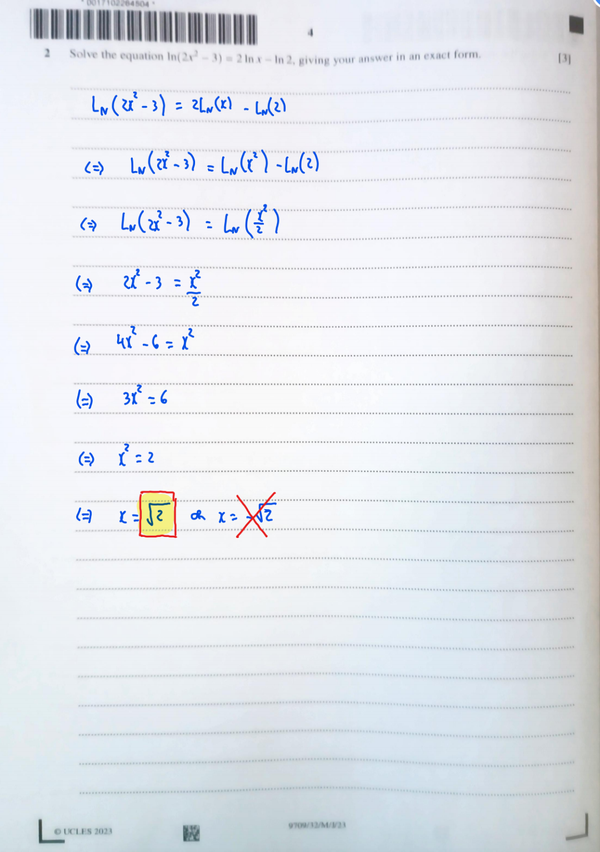 * 0017102284504 *
4
2 Solve the equation ln(2x² − 3) = 2 ln x − ln 2, giving your answer in an exact form. [3]
LN(2x² - 3) = 2LN(x) - LN(2)
(=) LN(2x² - 3) = LN(x²) - LN(2)
(=) LN(2x² - 3) = LN(x²/2)
(=) 2x² - 3 = x²/2
(=) 4x² - 6 = x²
(=) 3x² = 6
(=) x² = 2
(=) x = √2 or x = -√2
© UCLES 2023
9709/32/M/J/23